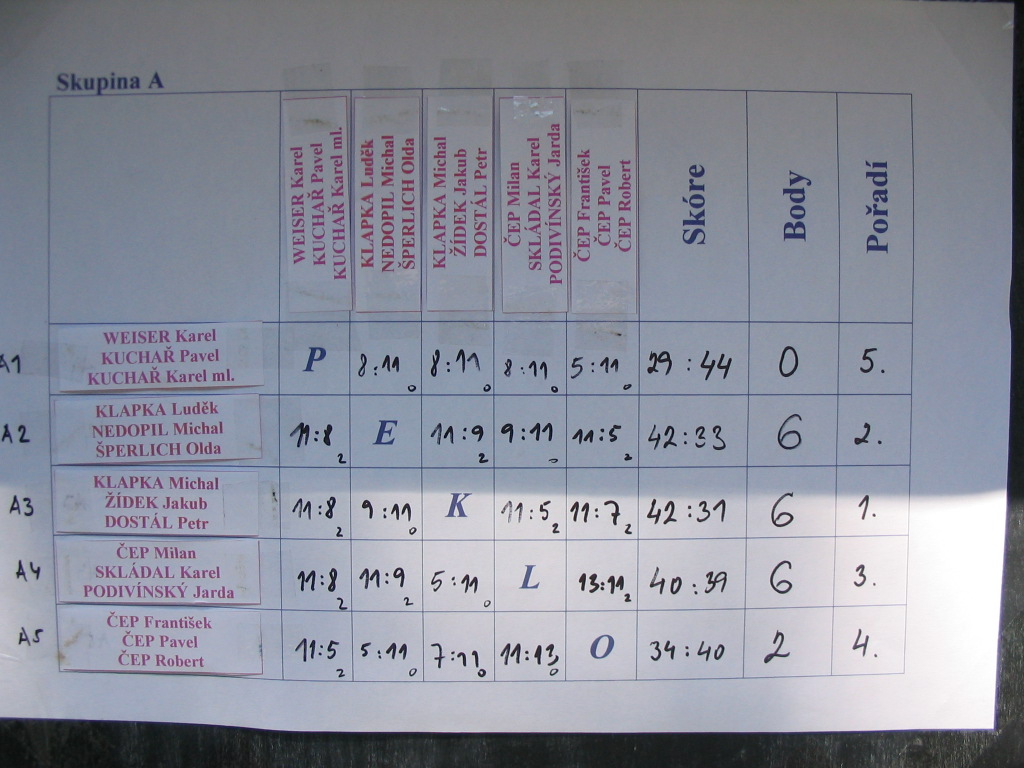 Skupina A
WEISER Karel
KUCHAŘ Pavel
KUCHAŘ Karel ml.
KLAPKA Luděk
NEDOPIL Michal
ŠPERLICH Olda
KLAPKA Michal
ŽÍDEK Jakub
DOSTÁL Petr
ČEP Milan
SKLÁDAL Karel
PODIVÍNSKÝ Jarda
ČEP František
ČEP Pavel
ČEP Robert
Skóre
Body
Pořadí
A1
WEISER Karel
KUCHAŘ Pavel
KUCHAŘ Karel ml.
P 8:11 0 8:11 0 8:11 0 5:11 0 29:44 0 5.
A2
KLAPKA Luděk
NEDOPIL Michal
ŠPERLICH Olda
11:8 2 E 11:9 2 9:11 0 11:5 2 42:33 6 2.
A3
KLAPKA Michal
ŽÍDEK Jakub
DOSTÁL Petr
11:8 2 9:11 0 K 11:5 2 11:7 2 42:31 6 1.
A4
ČEP Milan
SKLÁDAL Karel
PODIVÍNSKÝ Jarda
11:8 2 11:9 2 5:11 0 L 13:11 2 40:39 6 3.
A5
ČEP František
ČEP Pavel
ČEP Robert
11:5 2 5:11 0 7:11 0 11:13 0 O 34:40 2 4.